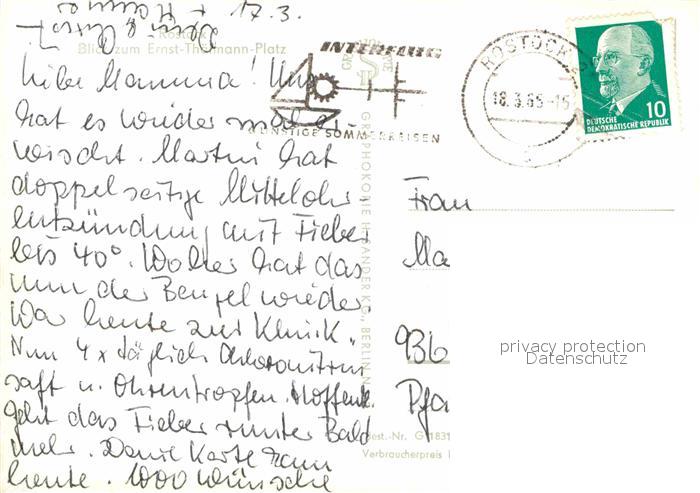 17.3.
Rostock
Blick zum Ernst-Thälmann-Platz
Liebe Mamma! Uns
hat es wieder mal er-
wischt. Martin hat
doppelseitige Mittelohr
entzündung mit Fieber
bis 40°. Woher hat das
nun der Bengel wieder.
War heute zur Klinik.
Nun 4x täglich Chloronitrin
saft u. Ohrentropfen. Hoffentl.
geht das Fieber runter Bald
mehr. Deine Karte kam
heute. 1000 Wünsche
INTERFLUG
GÜNSTIGE SOMMERREISEN
ROSTOCK
18.3.65-15
10
DEUTSCHE
DEMOKRATISCHE REPUBLIK
Frau
Ma
936
Pfa
privacy protection
Datenschutz
Best.-Nr. G 1831
Verbraucherpreis